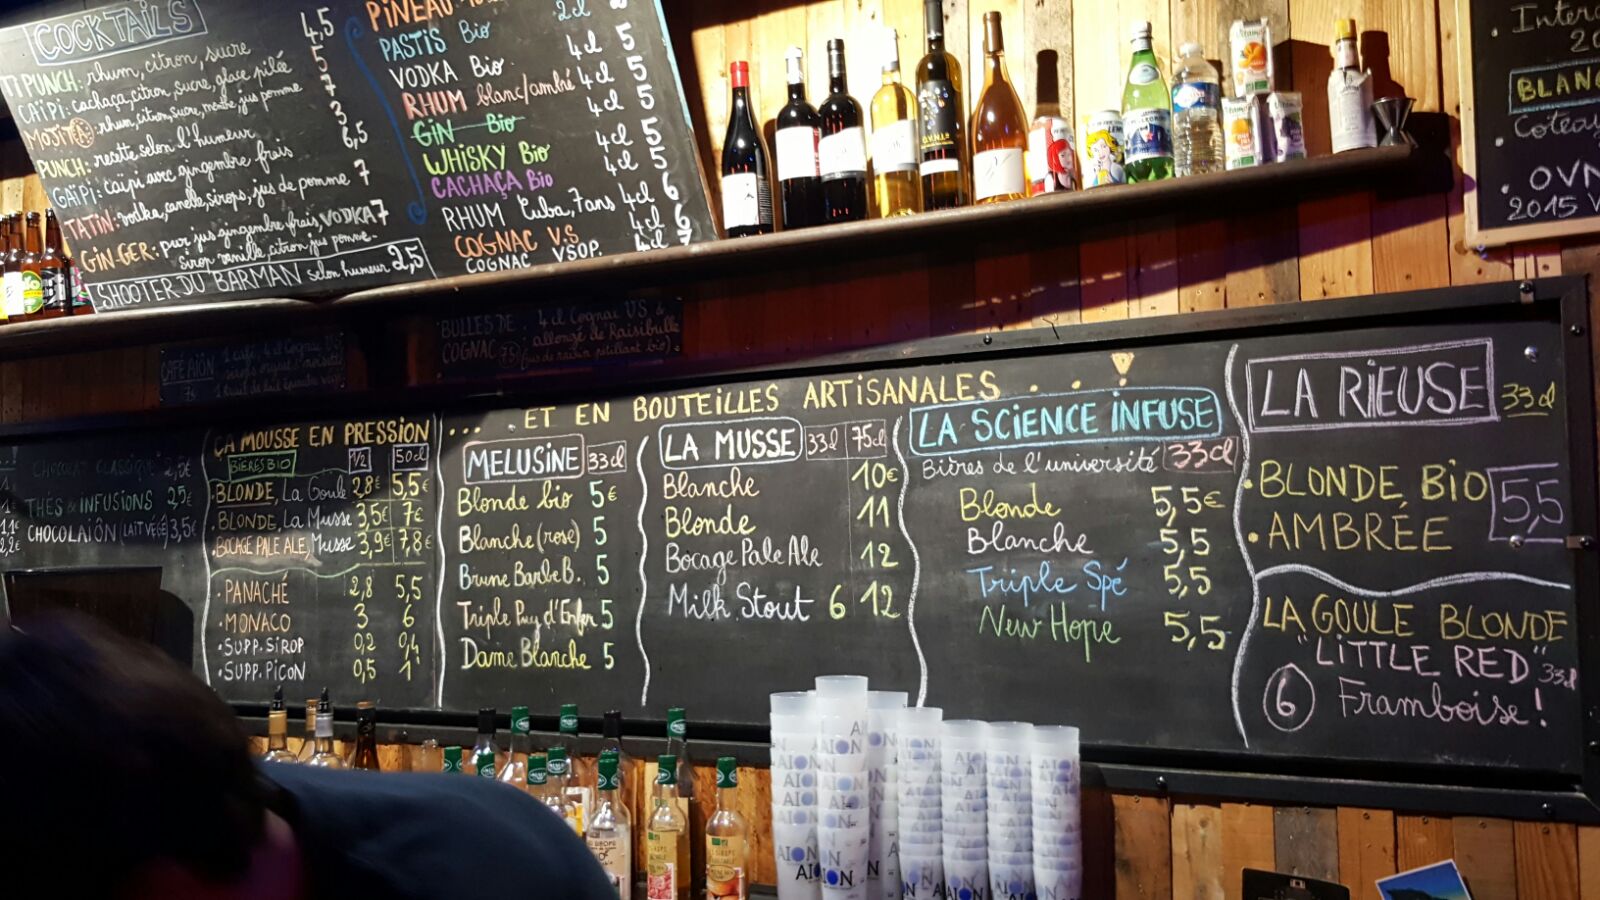 COCKTAILS
TI PUNCH: rhum, citron, sucre 4,5
CAÏPI: cachaça, citron, sucre, glace pilée 5
MOJITO: rhum, citron, sucre, menthe, jus pomme 7
PUNCH: recette selon l'humeur 3
GAÏPI: caïpi avec gingembre frais 6,5
TATIN: vodka, canelle, sirops, jus de pomme 7
GIN-GER: pur jus gingembre frais, VODKA 7
sirop vanille, citron, jus pomme.
SHOOTER DU BARMAN selon humeur 2,5
PINEAU
PASTIS Bio 2cl
VODKA Bio 4cl 5
RHUM blanc/ambré 4cl 5
GIN Bio 4cl 5
WHISKY Bio 4cl 5
CACHAÇA Bio 4cl 5
RHUM Cuba, 7ans 4cl 6
COGNAC V.S 4cl 6
COGNAC VSOP. 4cl 7
BLANC
OVN
2015
CAFÉ AÏON
BULLES DE COGNAC 7,5
4 cl Cognac VS &
allongé de Raisibulle
(jus de raisin pétillant bio)
CHOCOLAT CLASSIQUE 2,5€
THÉS & INFUSIONS 2,5€
CHOCOLAIÖN (LAIT VÉGÉ) 3,5€
ÇA MOUSSE EN PRESSION
BIÈRES BIO 1/2 50cl
·BLONDE, La Goule 2,8€ 5,5€
·BLONDE, La Musse 3,5€ 7€
·BOCAGE PALE ALE, Musse 3,9€ 7,8€
·PANACHÉ 2,8 5,5
·MONACO 3 6
·SUPP. SIROP 0,2 0,4
·SUPP. PICON 0,5 1
... ET EN BOUTEILLES ARTISANALES ... !
MELUSINE 33cl
Blonde bio 5€
Blanche (rose) 5
Brune BarbeB. 5
Triple Puy d'Enfer 5
Dame Blanche 5
LA MUSSE 33cl 75cl
Blanche 10€
Blonde 11
Bocage Pale Ale 12
Milk Stout 6 12
LA SCIENCE INFUSE
Bières de l'université 33cl
Blonde 5,5€
Blanche 5,5
Triple Spé 5,5
New Hope 5,5
LA RIEUSE 33cl
·BLONDE BIO
·AMBRÉE
5,5
LA GOULE BLONDE
"LITTLE RED" 33cl
6 Framboise!
AION